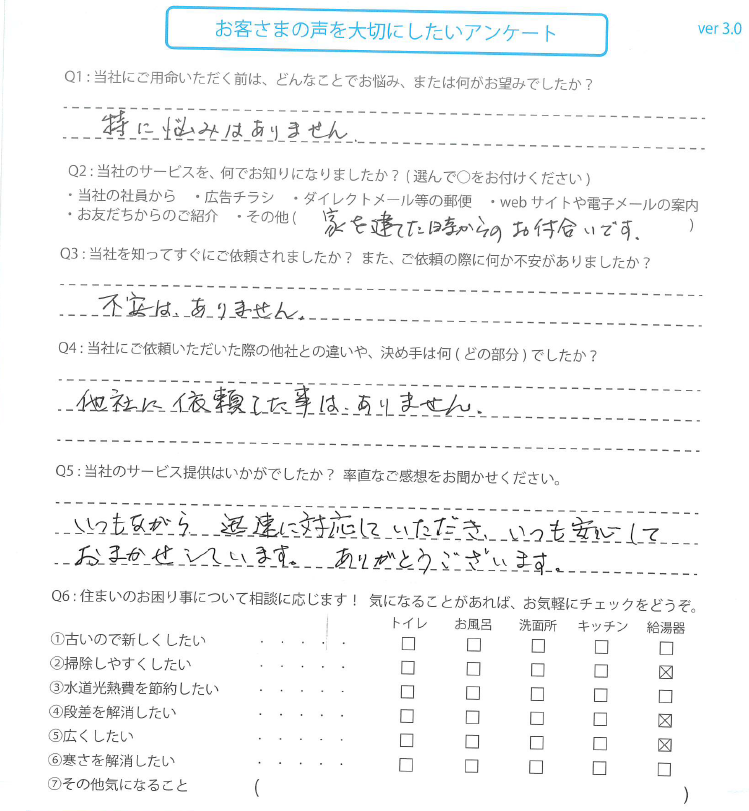 お客さまの声を大切にしたいアンケート
ver 3.0
Q1 : 当社にご用命いただく前は、どんなことでお悩み、または何がお望みでしたか？
特に悩みはありません。
Q2 : 当社のサービスを、何でお知りになりましたか？ ( 選んで○をお付けください )
・当社の社員から ・広告チラシ ・ダイレクトメール等の郵便 ・web サイトや電子メールの案内
・お友だちからのご紹介 ・その他 ( 家を建てた時からのお付合いです。 )
Q3 : 当社を知ってすぐにご依頼されましたか？ また、ご依頼の際に何か不安がありましたか？
不安は、ありません。
Q4 : 当社にご依頼いただいた際の他社との違いや、決め手は何 ( どの部分 ) でしたか？
他社に依頼した事は、ありません。
Q5 : 当社のサービス提供はいかがでしたか？ 率直なご感想をお聞かせください。
いつもながら 迅速に対応して いただき、いつも安心して
おまかせしています。 ありがとうございます。
Q6 : 住まいのお困り事について相談に応じます！ 気になることがあれば、お気軽にチェックをどうぞ。
トイレ お風呂 洗面所 キッチン 給湯器
①古いので新しくしたい ・・・・・ □ □ □ □ □
②掃除しやすくしたい ・・・・・ □ □ □ □ ☒
③水道光熱費を節約したい ・・・・・ □ □ □ □ □
④段差を解消したい ・・・・・ □ □ □ □ ☒
⑤広くしたい ・・・・・ □ □ □ □ ☒
⑥寒さを解消したい ・・・・・ □ □ □ □ □
⑦その他気になること ( )